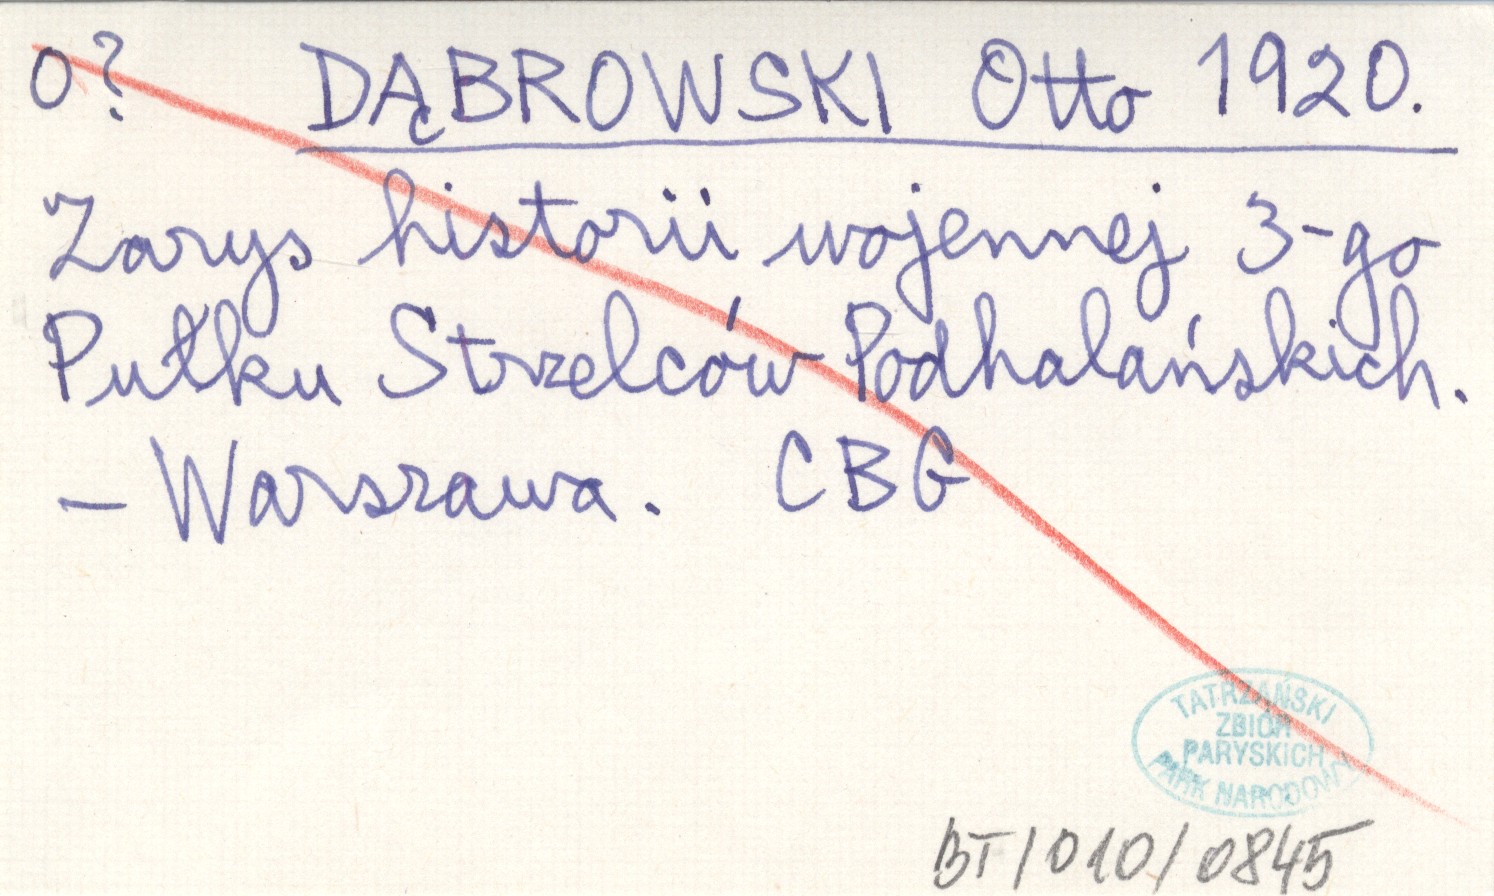 o? DĄBROWSKI Otto 1920.
Zarys historii wojennej 3-go
Pułku Strzelców Podhalańskich.
— Warszawa. CBG
TATRZAŃSKI
ZBIÓR
PARYSKICH
PARK NARODOWY
BT/010/0845